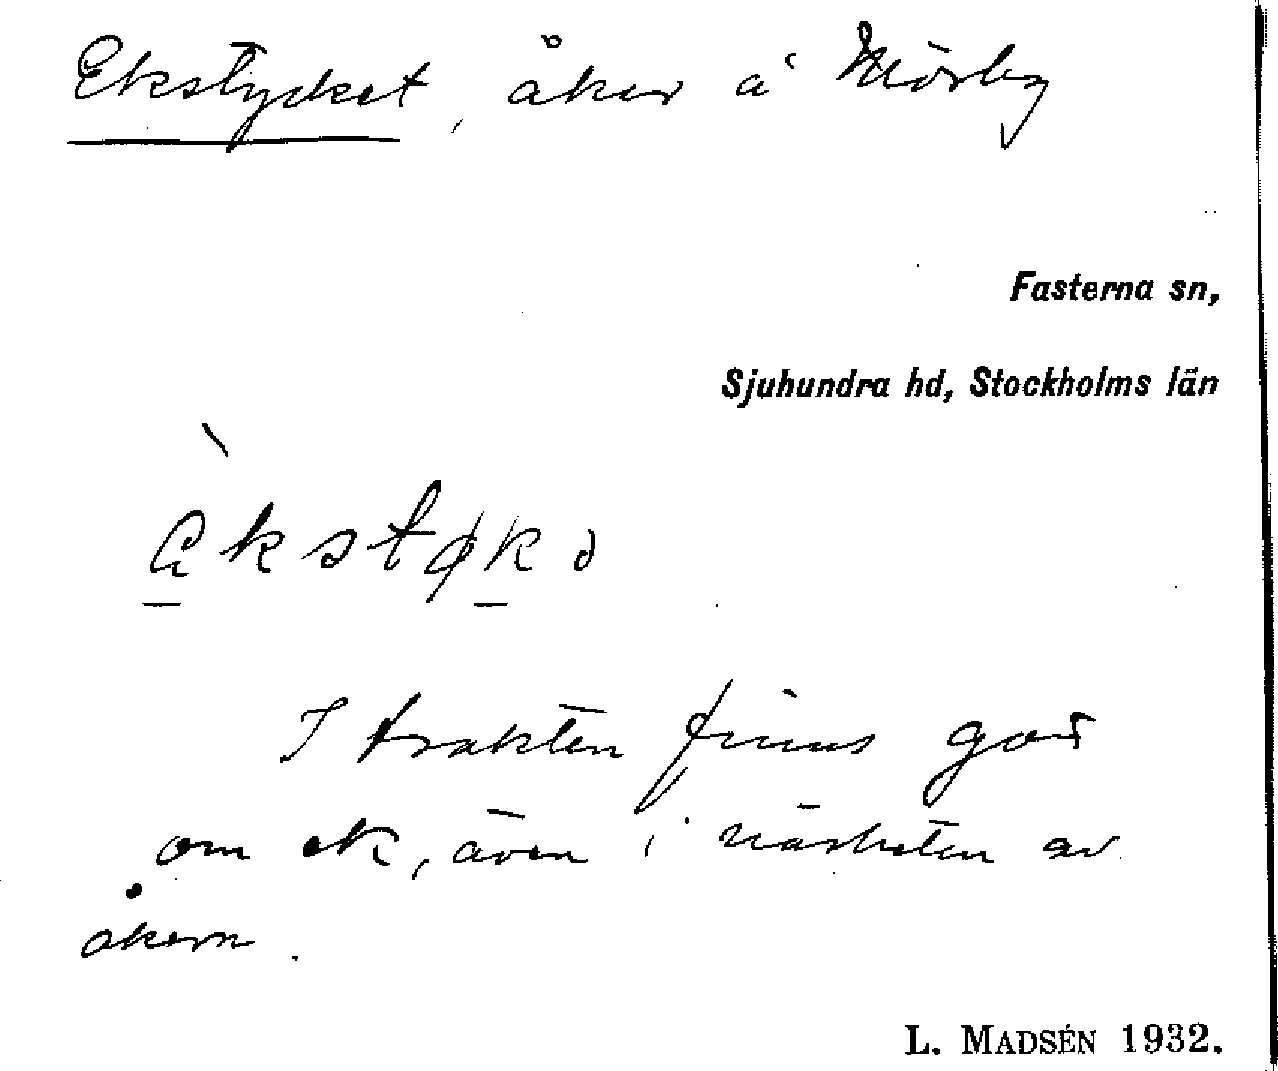 Ekstycket, åker å Mörby
Fasterna sn,
Sjuhundra hd, Stockholms län
I trakten finns gott
om ek, även i närheten av
åkern.
L. MADSÉN 1932.